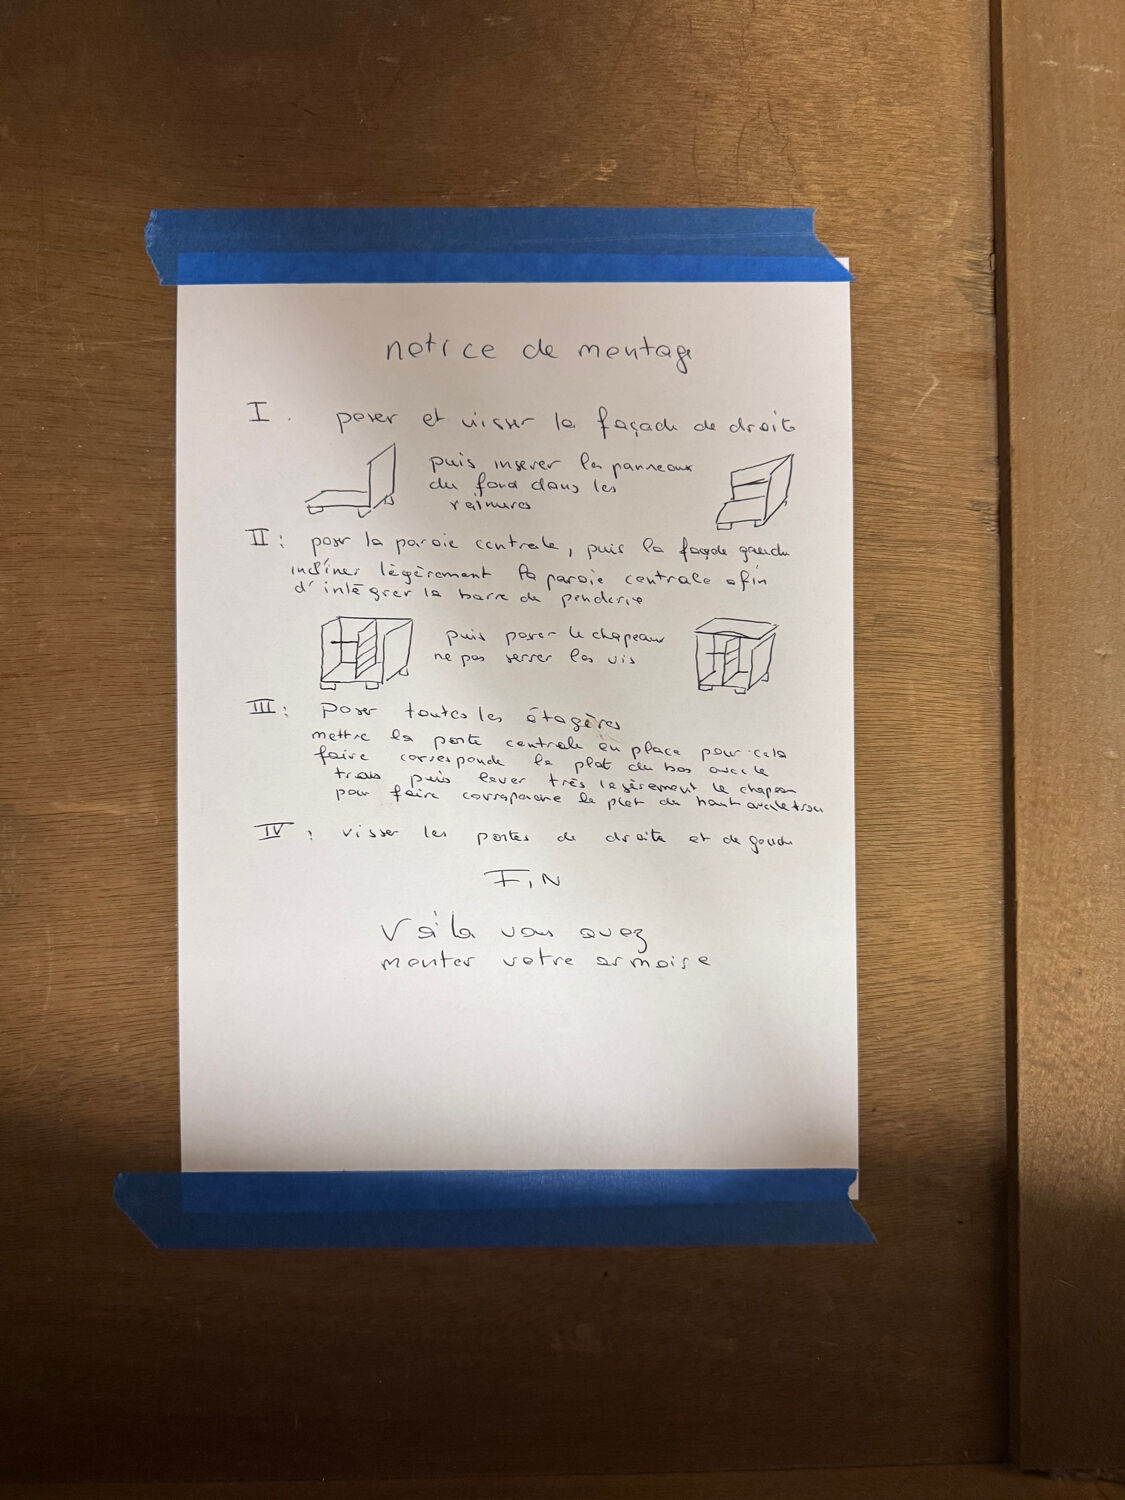 notice de montage
I. poser et visser la façade de droite
puis inserer les panneaux
du fond dans les
rainures
II: poser la paroie centrale, puis la façade gauche
incliner légèrement la paroie centrale afin
d'intégrer la barre de penderie
puis poser le chapeau
ne pas serrer les vis
III: poser toutes les étagères
mettre la porte centrale en place pour cela
faire correspondre le plot du bas avec le
trou puis lever très légèrement le chapeau
pour faire correspondre le plot du haut avec le trou
IV: visser les portes de droite et de gauche
FIN
Voila vous avez
monter votre armoire